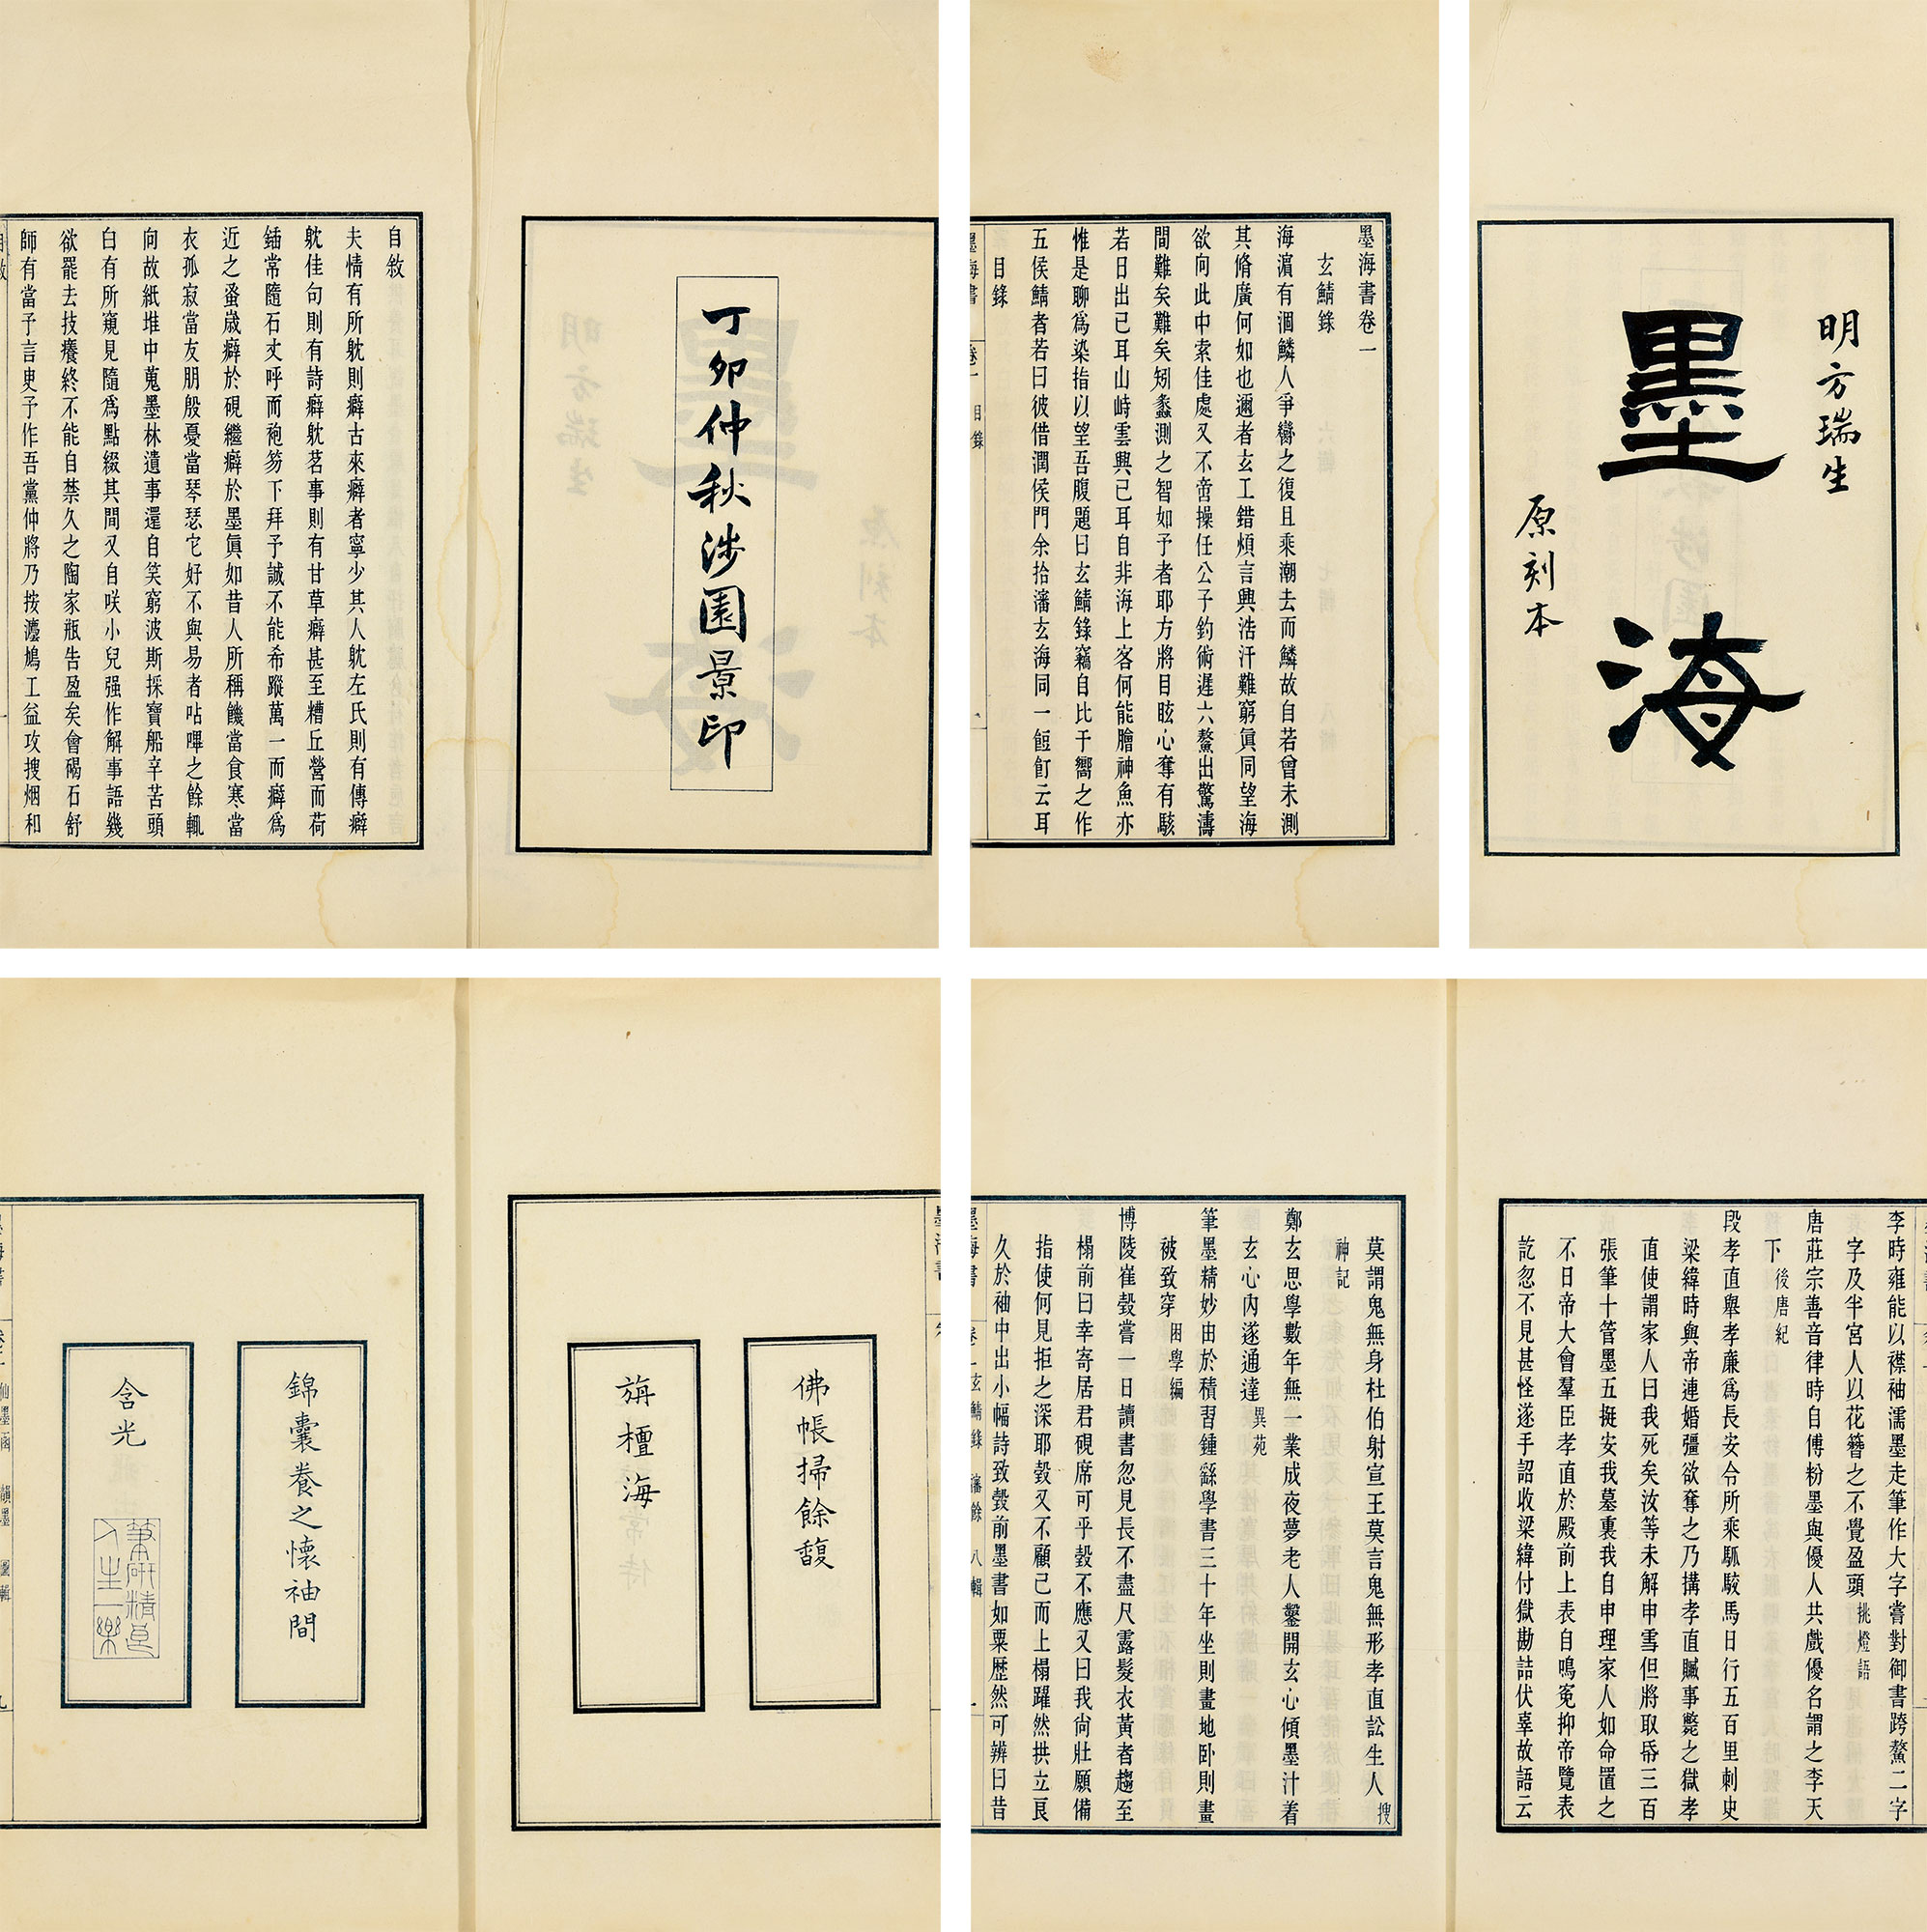 明方瑞生
墨海
原刻本
墨海書卷一
玄鯖錄
海濵有涸鱗人爭𦌾之復且乘潮去而鱗故自若曾未測
其脩廣何如也邇者玄工錯煩言興浩汗難窮眞同望海
欲向此中索佳處又不啻操任公子釣術遲六鰲出驚濤
間難矣難矣矧蠡測之智如予者耶方將目眩心奪有駭
若日出已耳山峙雲興已耳自非海上客何能膾神魚亦
惟是聊爲染指以望吾腹題曰玄鯖錄竊自比于嚮之作
五侯鯖者若曰彼借潤侯門余拾瀋玄海同一飣飣云耳
目錄
墨海書 卷一 目錄
丁卯仲秋涉園景印
自敘
夫情有所躭則癖古來癖者寧少其人躭左氏則有傳癖
躭佳句則有詩癖躭茗事則有甘草癖甚至糟丘營而荷
鍤常隨石丈呼而袍笏下拜予誠不能希蹤萬一而癖爲
近之蚤歳癖於硯繼癖於墨眞如昔人所稱饑當食寒當
衣孤寂當友朋殷憂當琴瑟它好不與易者呫嗶之餘輒
向故紙堆中蒐墨林遺事還自笑窮波斯採寶船辛苦頭
白有所窺見隨爲點綴其間又自咲小兒强作解事語幾
欲罷去技癢終不能自禁久之陶家瓶告盈矣會碣石舒
師有當予言叓予作吾黨仲將乃按瀍鳩工益攻搜烟和
自敘
李時雍能以襟袖濡墨走筆作大字嘗對御書跨鰲二字
字及半宮人以花簪之不覺盈頭 挑燈語
唐莊宗善音律時自傅粉墨與優人共戲優名謂之李天
下 後唐紀
段孝直舉孝廉爲長安令所乘駬駿馬日行五百里刺史
梁緯時與帝連婚彊欲奪之乃搆孝直贓事斃之獄孝
直使謂家人曰我死矣汝等未解申雪但將取帋三百
張筆十管墨五挺安我墓裏我自申理家人如命置之
不日帝大會羣臣孝直於殿前上表自鳴寃抑帝覽表
訖忽不見甚怪遂手詔收梁緯付獄勘詰伏辜故語云
莫謂鬼無身杜伯射宣王莫言鬼無形孝直訟生人 搜
神記
鄭玄思學數年無一業成夜夢老人鑿開玄心傾墨汁着
玄心内遂通達 異苑
筆墨精妙由於積習鍾繇學書三十年坐則畫地卧則畫
被致穿 困學編
博陵崔瑴嘗一日讀書忽見長不盡尺露髮衣黃者趨至
榻前曰幸寄居君硯席可乎瑴不應又曰我尙壯願備
指使何見拒之深耶瑴又不顧已而上榻躍然拱立良
久於袖中出小幅詩致瑴前墨書如粟歴然可辨曰昔
墨海書 卷一 玄鯖錄 瀋餘 八輯
佛帳掃餘馥
旃檀海
錦囊養之懷袖間
含光
筆研精良
人生一樂